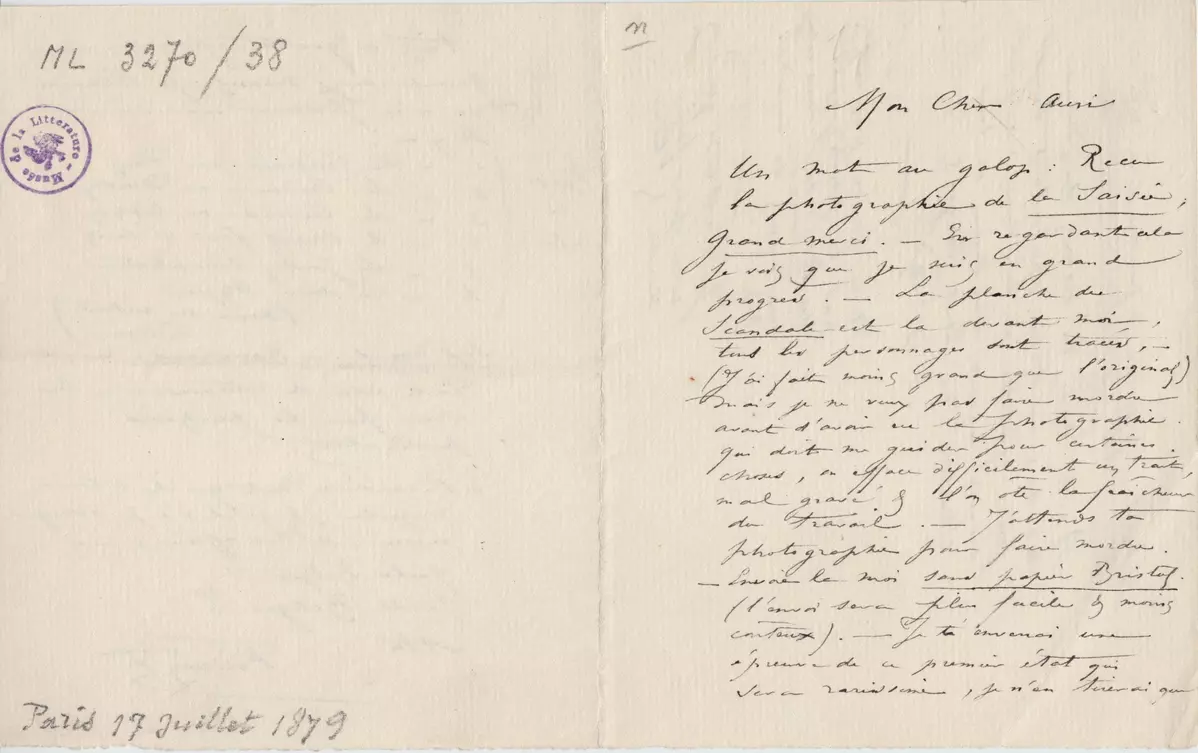 ML 3270/38
Musée de la Littérature
Paris 17 Juillet 1879
n
Mon Cher Auri
Un mot au galop : Recu
la photographie de la Saisie,
Grand merci. — En regardant cela
je vois que je suis en grand
progrès. — La planche du
Scandale est la devant moi,
tous les personnages sont tracés, —
(J'ai fait moins grand que l'original)
mais je ne veux pas faire mordre
avant d'avoir vu la photographie
qui doit me guider pour certaines
choses, on efface difficilement un trait,
mal gravé & l'on ôte la fraicheur
du travail. — J'attends ta
photographie pour faire mordre.
— Envoie la moi sans papier Bristol.
(l'envoi sera plus facile & moins
couteux). — Je t'enverrai une
épreuve de ce premier état qui
sera rarissime, je n'en tirerai que